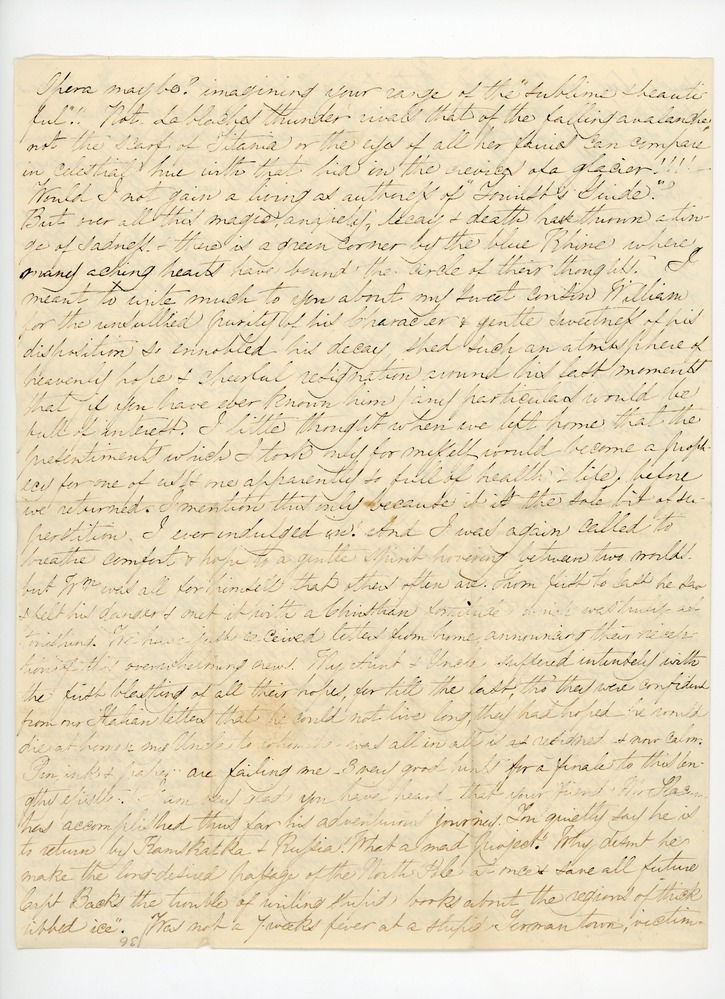 Opera maybe? imagining your range of the "sublime & beauti-
ful"!! Not Lablaches thunder rivals that of the falling avalanche,
not the scarf of Titania or the eyes of all her fairies can compare
in celestial hue with that hid in the crevices of a glacier!!!! -
Would I not gain a living as authoress of "Tourist's Guide"?
But over all this magic, anxiety, decay & death have thrown a tin-
ge of sadness - & there is a green corner by the blue Rhine where
many aching hearts have bound the circle of their thoughts. I
meant to write much to you about my sweet cousin William
for the unsullied purity of his character & gentle sweetness of his
disposition so ennobled his decay, shed such an atmosphere of
heavenly hope & cheerful resignation around his last moments
that if you have ever known him, any particulars would be
full of interest. I little thought when we left home that the
presentiments which I took only for myself would become a proph-
ecy for one of us & one apparently so full of health & life, before
we returned. I mention this only because it is the sole bit of su-
perstition I ever indulged in. And I was again called to
breathe comfort & hope to a gentle spirit hovering between two worlds.
but Wm was all for himself that others often are. From first to last he saw
& felt his danger & met it with a Christian fortitude which was truly as-
tonishing. We have just received letters from home announcing their recep-
tion of this overwhelming news. My Aunt & Uncle suffered intensely with
the first blasting of all their hopes, for till the last, tho' they were confident
from our Italian letters that he could not live long, they had hoped he could
die at home. My Uncle to whom he was all in all is as resigned & now calm.
Pen, ink & paper are failing me - 3 very good hints for a finale to this len-
gthy epistle. I am very glad you have heard that your friend Mr
has accomplished thus far his adventurous journey. You quietly say he is
to return by Kamskatka & Russia! What a mad project! Why doesnt he
make the long-desired passage of the North Pole at once & save all future
Capt Backs the trouble of writing stupid books about the regions of "thick
ribbed ice". Was not a 7 weeks fever at a stupid German town, victim-
98